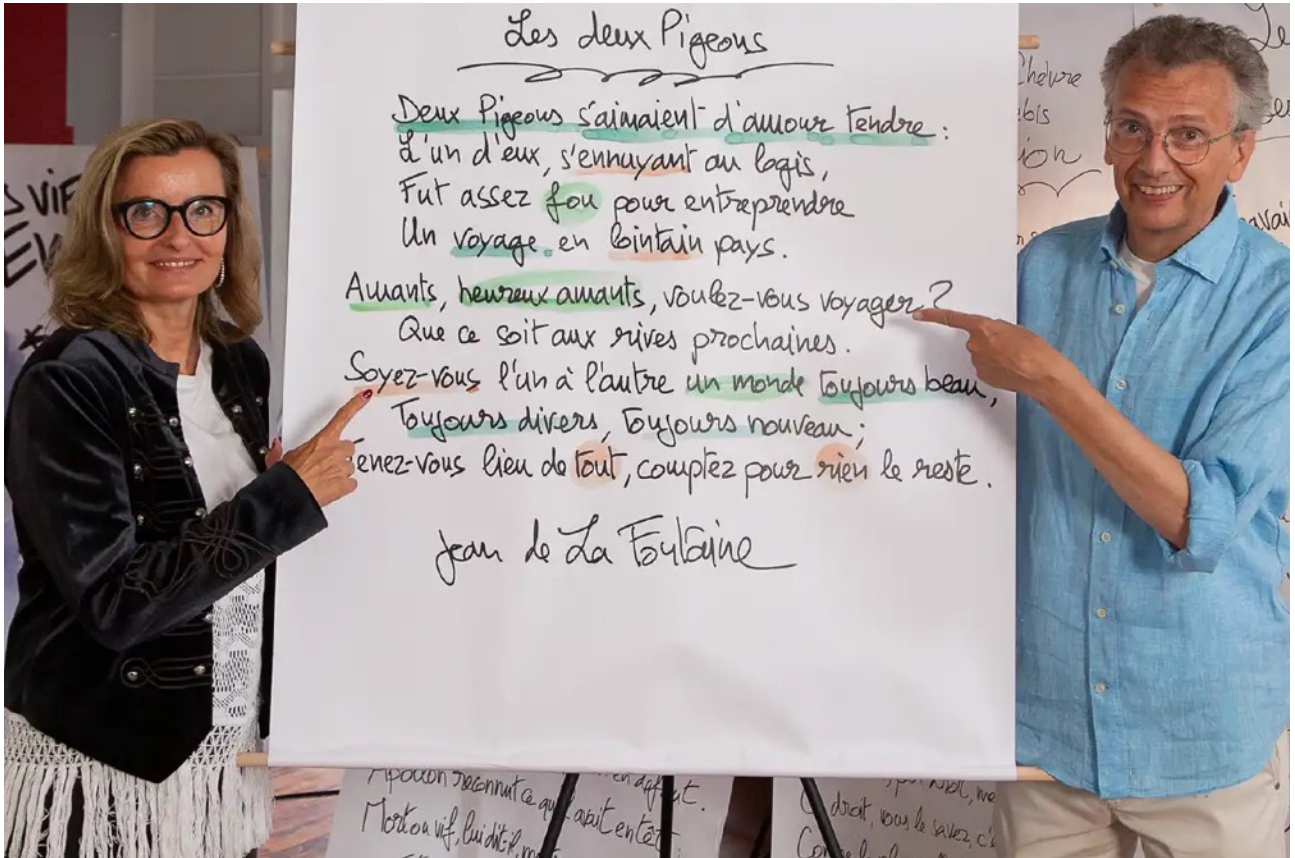 Les deux Pigeons
Deux Pigeons s'aimaient d'amour tendre :
L'un d'eux, s'ennuyant au logis,
Fut assez fou pour entreprendre
Un voyage en lointain pays.
Amants, heureux amants, voulez-vous voyager ?
Que ce soit aux rives prochaines.
Soyez-vous l'un à l'autre un monde toujours beau,
Toujours divers, toujours nouveau ;
Tenez-vous lieu de tout, comptez pour rien le reste.
Jean de La Fontaine
Chèvre
ion
avai
Apollon reconnut ce qu' avait en tête
Mort ou vif, lui dit-il, m
droit, vous le savez, c'